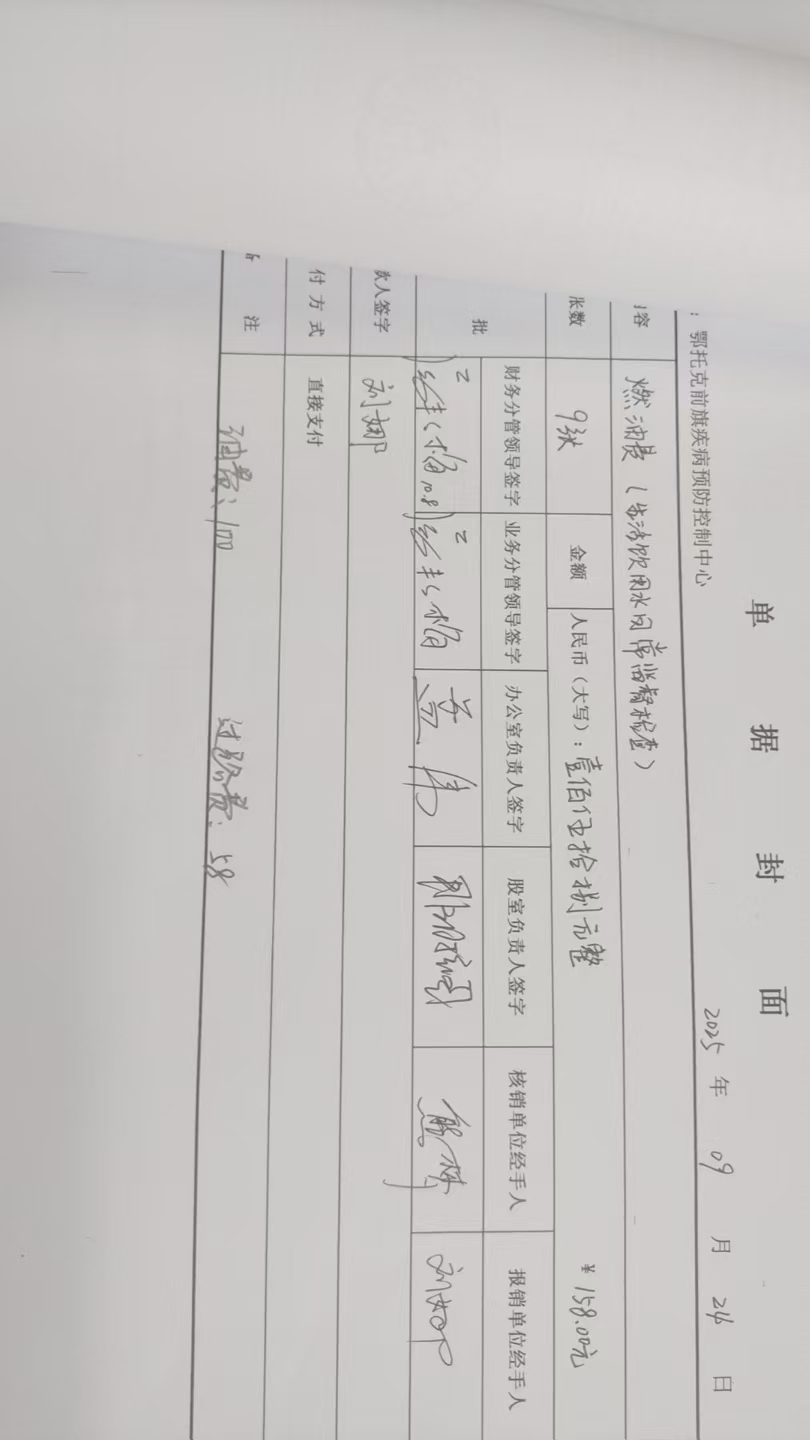 单 据 封 面
: 鄂托克前旗疾病预防控制中心 2025 年 09 月 24 日
容 燃油费(生活饮用水日常监督检查)
张数 9张 金额 人民币(大写):壹佰伍拾捌元整 ¥ 158.00元
批 财务分管领导签字 业务分管领导签字 办公室负责人签字 股室负责人签字 核销单位经手人 报销单位经手人
10.8 刘娜
人签字 刘娜
付 方 式 直接支付
注 油费:100 过路费:58